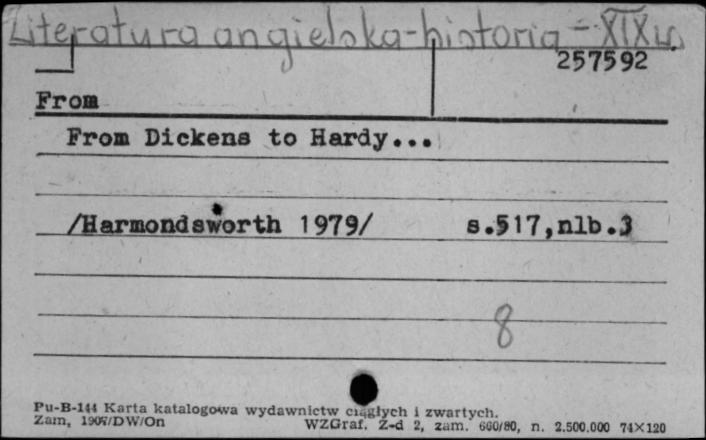 Literatura angielska-historia - XIXw.
257592
From
From Dickens to Hardy...
/Harmondsworth 1979/ s.517,nlb.3
8
Pu-B-144 Karta katalogowa wydawnictw ciągłych i zwartych.
Zam, /DW/On WZGraf. Z-d 2, zam. 660/80, n. 2.500.000 74×120